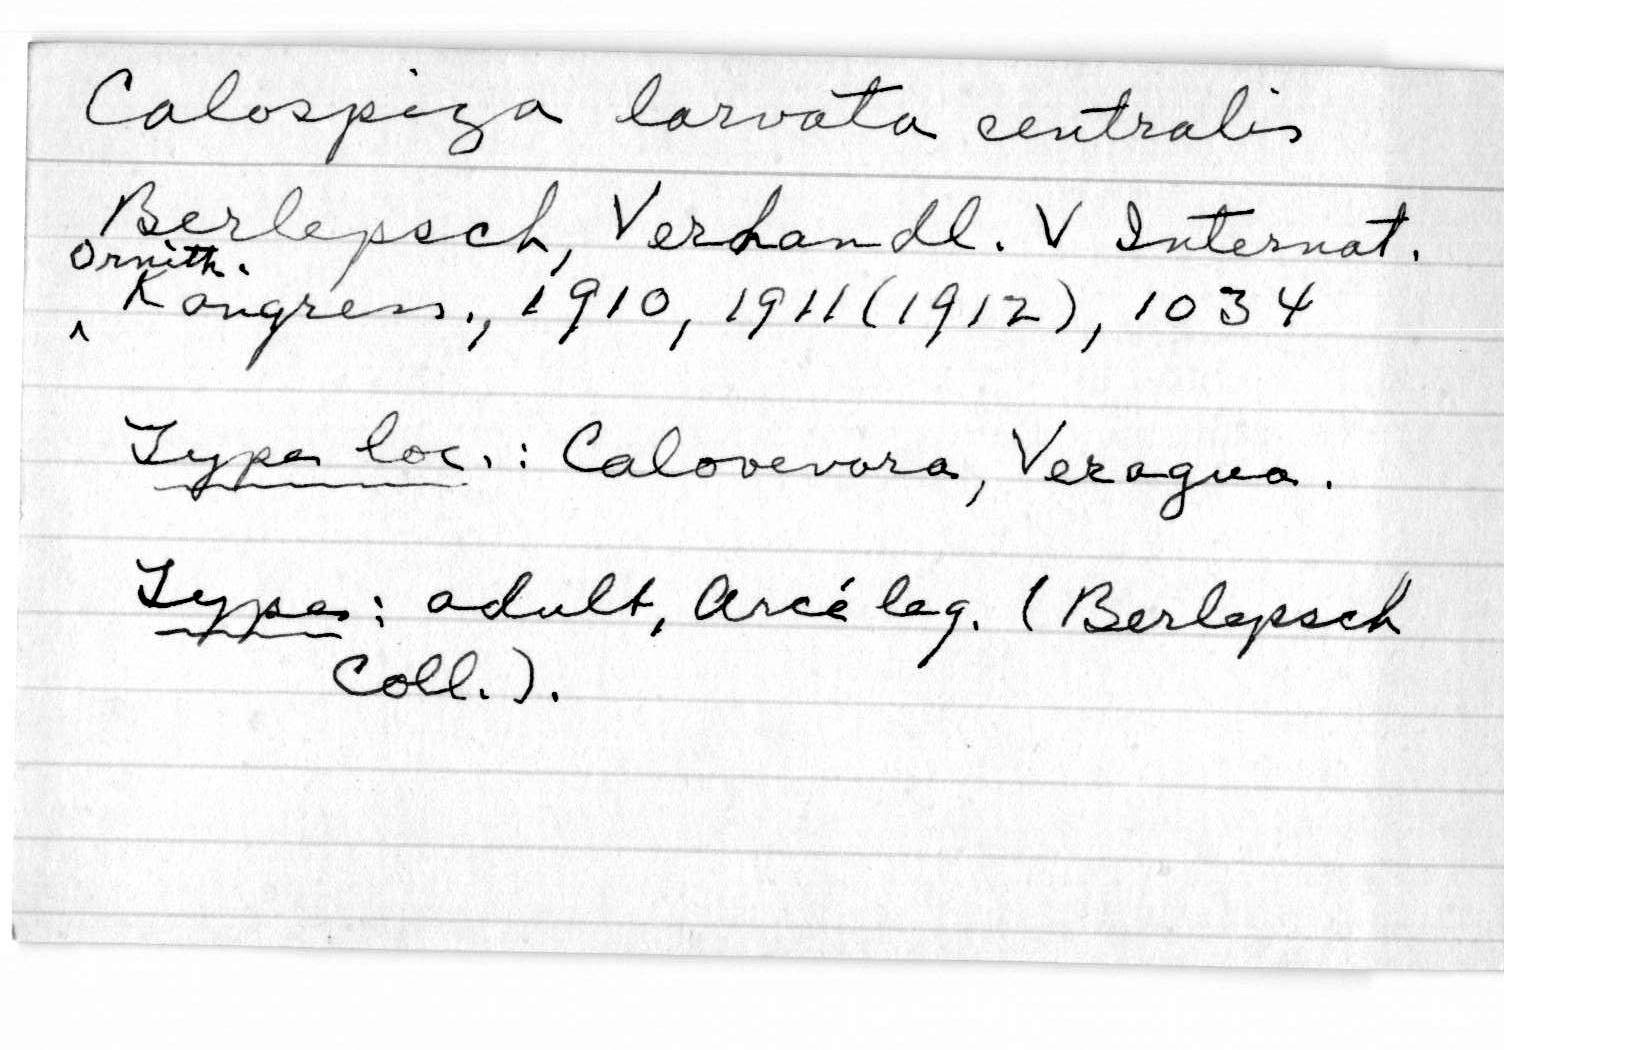 Calospiza larvata centralis
Berlepsch, Verhandl. V Internat.
Ornith.
^ Kongress., 1910, 1911 (1912), 1034
Type loc.: Calovevora, Veragua.
Type: adult, Arcé leg. (Berlepsch
Coll.).